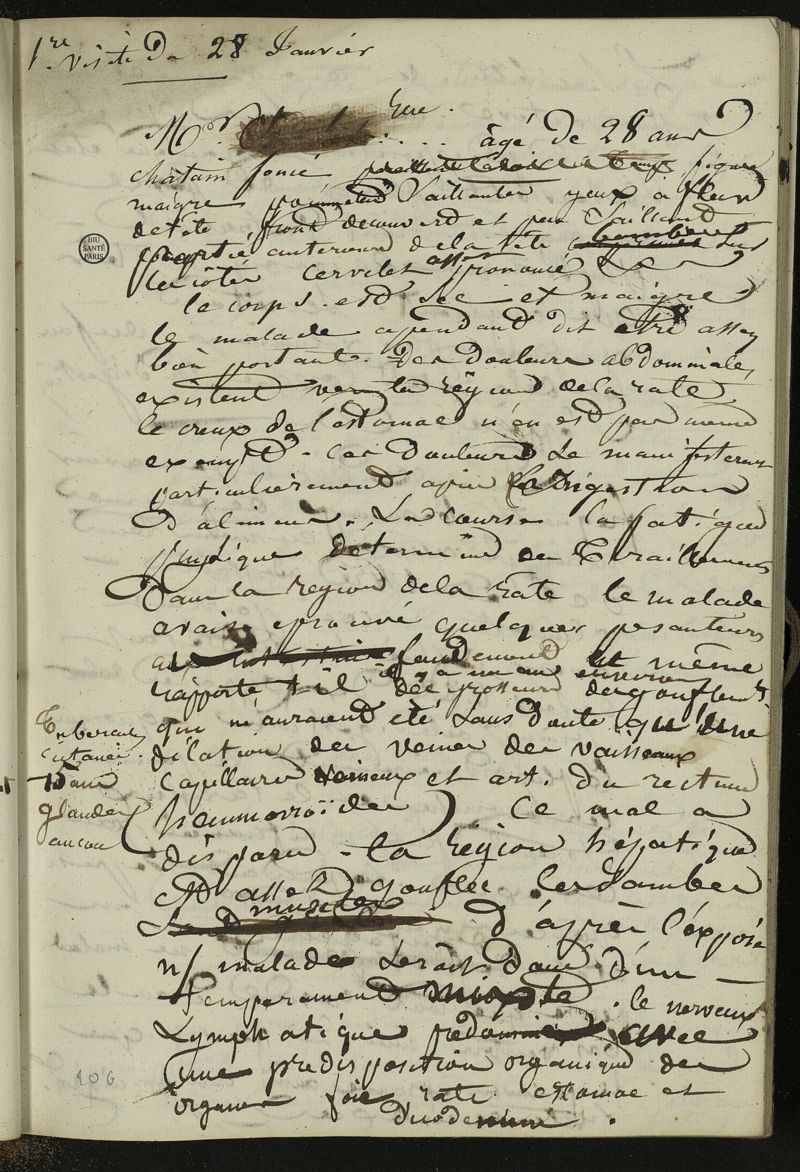 1re visite du 28 Janvier
Mr ère .... âgé de 28 ans
chatain foncé figure
maigre pommettes saillantes yeux a fleur
de tête, front decouvert et peu saillant
partie anterieure de la tête bombée sur
les côtés cervelet assez prononcé
le corps est sec et maigre
le malade cependant dit etre assez
bien portant. Des douleurs abdominales
existent vers la région de la rate
le creux de l'estomac n'en est pas même
exempt. Ces douleurs se manifestent
particulierement après la digestion
d'alimens. La course la fatigue
physique determine des tiraillemens
dans la région de la rate le malade
avait eprouvé quelques pesanteurs
au fondement et même
il y a un an environ
rapporte t-il des grosseurs des gonflemts
qui n'auraient été sans doute qu'une
dilation des veines des vaisseaux
capillaires veineux et art. du rectum
(hemmoroïdes) Ce mal a
disparu - la région hépatique
est assez gonflée les Jambes
muscles
d'après l'exposé
n/ malade serait doué d'un
temperament mixte. le nerveux
Lymphatique predomine avec
une predisposition organique des
organes foie rate estomac et
duodenum.
cutanée
glandes
aucun
BIU
SANTÉ
PARIS
106